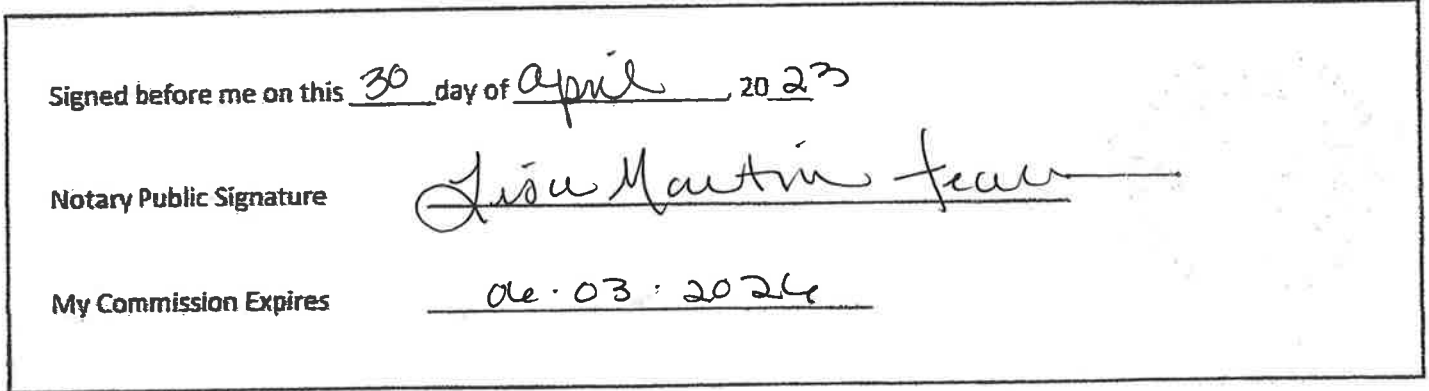 Signed before me on this 30 day of April, 2023
Notary Public Signature Lisa Martin
My Commission Expires 06.03.2026